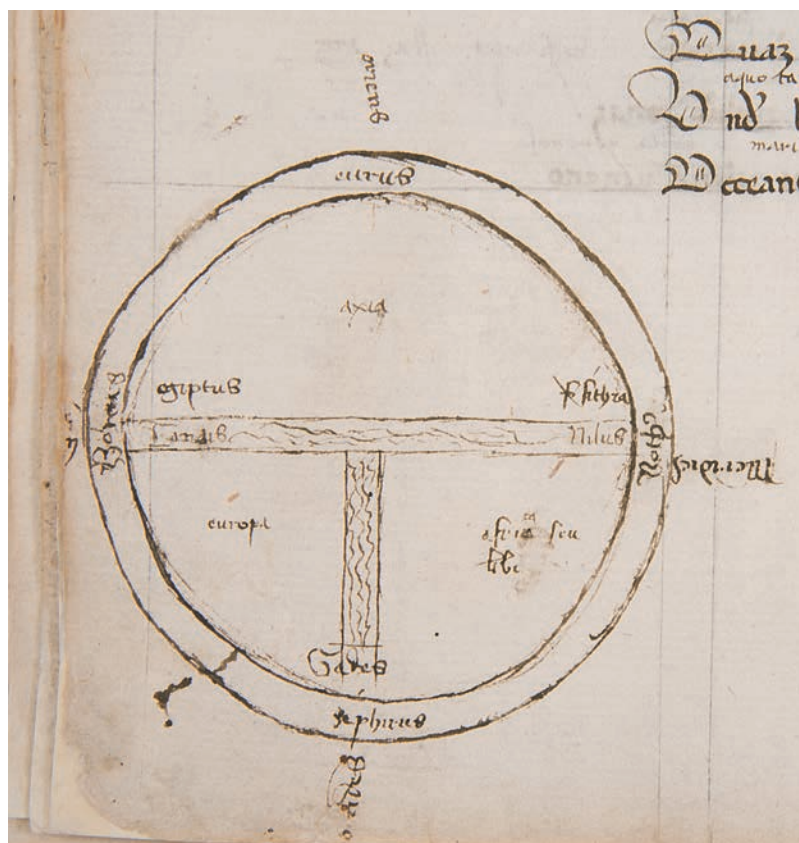 Quaz
aquo ta
Vnd
mari
Occean
oriens
eurus
axia
egiptus
sithia
Boreas
Tanais
Nilus
Noth9
Meridies
europa
africa seu
libi
Gades
zephirus